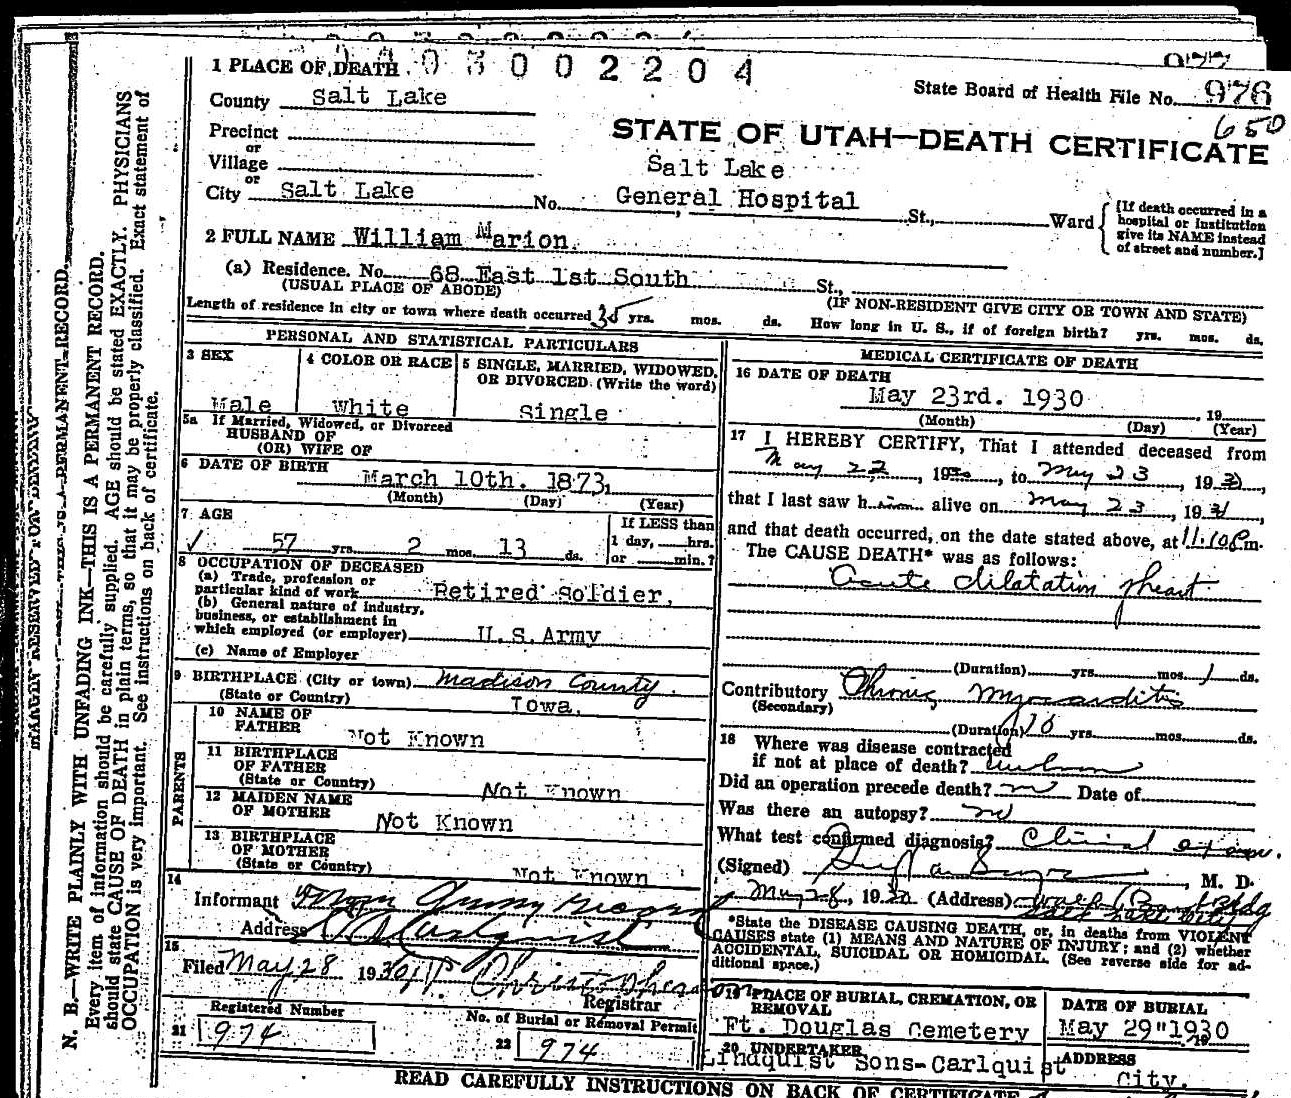 1 PLACE OF DEATH
3 0 0 2 2 0 4
State Board of Health File No. 976
650
County Salt Lake
STATE OF UTAH—DEATH CERTIFICATE
Precinct
or
Village
or
Salt Lake
City Salt Lake No. General Hospital St., Ward
[If death occurred in a
hospital or institution
give its NAME instead
of street and number.]
2 FULL NAME William Marion.
(a) Residence. No. 68 East 1st South St.,
(USUAL PLACE OF ABODE)
(IF NON-RESIDENT GIVE CITY OR TOWN AND STATE)
Length of residence in city or town where death occurred 35 yrs. mos. ds. How long in U. S., if of foreign birth? yrs. mos. ds.
PERSONAL AND STATISTICAL PARTICULARS
3 SEX
Male
4 COLOR OR RACE
White
5 SINGLE, MARRIED, WIDOWED,
OR DIVORCED (Write the word)
Single
5a If Married, Widowed, or Divorced
HUSBAND OF
(OR) WIFE OF
6 DATE OF BIRTH
March 10th. 1873,
(Month) (Day) (Year)
7 AGE
57 yrs. 2 mos. 13 ds.
If LESS than
1 day, hrs.
or min.?
8 OCCUPATION OF DECEASED
(a) Trade, profession or
particular kind of work Retired Soldier,
(b) General nature of industry,
business, or establishment in
which employed (or employer) U.S. Army
(c) Name of Employer
9 BIRTHPLACE (City or town) Madison County
(State or Country) Iowa.
PARENTS
10 NAME OF
FATHER Not Known
11 BIRTHPLACE
OF FATHER
(State or Country) Not Known
12 MAIDEN NAME
OF MOTHER Not Known
13 BIRTHPLACE
OF MOTHER
(State or Country) Not Known
14
Informant
Address
15
Filed May 28 1930
Registrar
Registered Number
21 974
No. of Burial or Removal Permit
22 974
MEDICAL CERTIFICATE OF DEATH
16 DATE OF DEATH
May 23rd. 1930, 19
(Month) (Day) (Year)
17 I HEREBY CERTIFY, That I attended deceased from
May 22, 1930, to May 23, 1930,
that I last saw him alive on May 23, 193
and that death occurred, on the date stated above, at 11.10 P m.
The CAUSE DEATH* was as follows:
Acute dilatation of heart
(Duration) yrs. mos. 1 ds.
Contributory Chronic Myocarditis
(Secondary)
(Duration) 10 yrs. mos. ds.
18 Where was disease contracted
if not at place of death? unknown
Did an operation precede death? no Date of
Was there an autopsy? no
What test confirmed diagnosis? Clinical exam.
(Signed) , M. D.
May 28, 1930 (Address) Bldg
Salt Lake City
*State the DISEASE CAUSING DEATH, or, in deaths from VIOLENT
CAUSES state (1) MEANS AND NATURE OF INJURY; and (2) whether
ACCIDENTAL, SUICIDAL OR HOMICIDAL. (See reverse side for ad-
ditional space.)
19 PLACE OF BURIAL, CREMATION, OR
REMOVAL
Ft. Douglas Cemetery
DATE OF BURIAL
May 29" 1930
20 UNDERTAKER
Lindquist Sons-Carlquist
ADDRESS
City.
READ CAREFULLY INSTRUCTIONS ON BACK OF CERTIFICATE
N. B.—WRITE PLAINLY WITH UNFADING INK—THIS IS A PERMANENT RECORD.
Every item of information should be carefully supplied. AGE should be stated EXACTLY. PHYSICIANS
should state CAUSE OF DEATH in plain terms, so that it may be properly classified. Exact statement of
OCCUPATION is very important. See instructions on back of certificate.